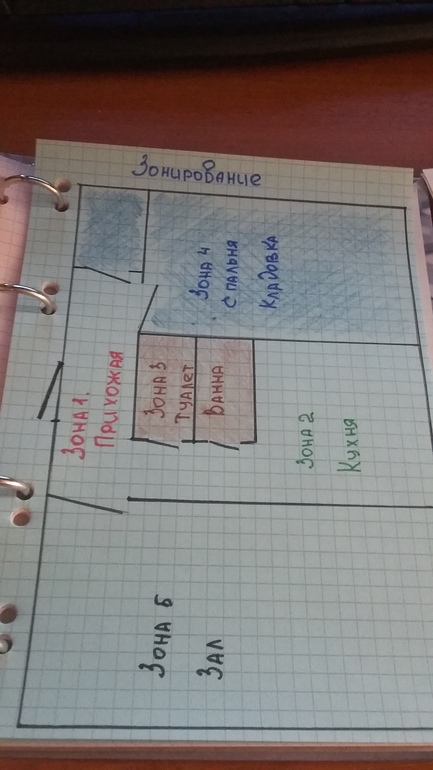 Зонирование
Зона 4
Спальня
Кладовка
Зона 1.
Прихожая
Зона 3
Туалет
Ванна
Зона 2
Кухня
Зона 5
Зал